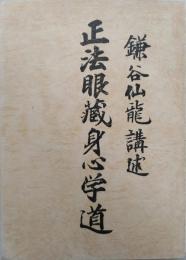 鎌谷仙龍講述
正法眼藏身心学道